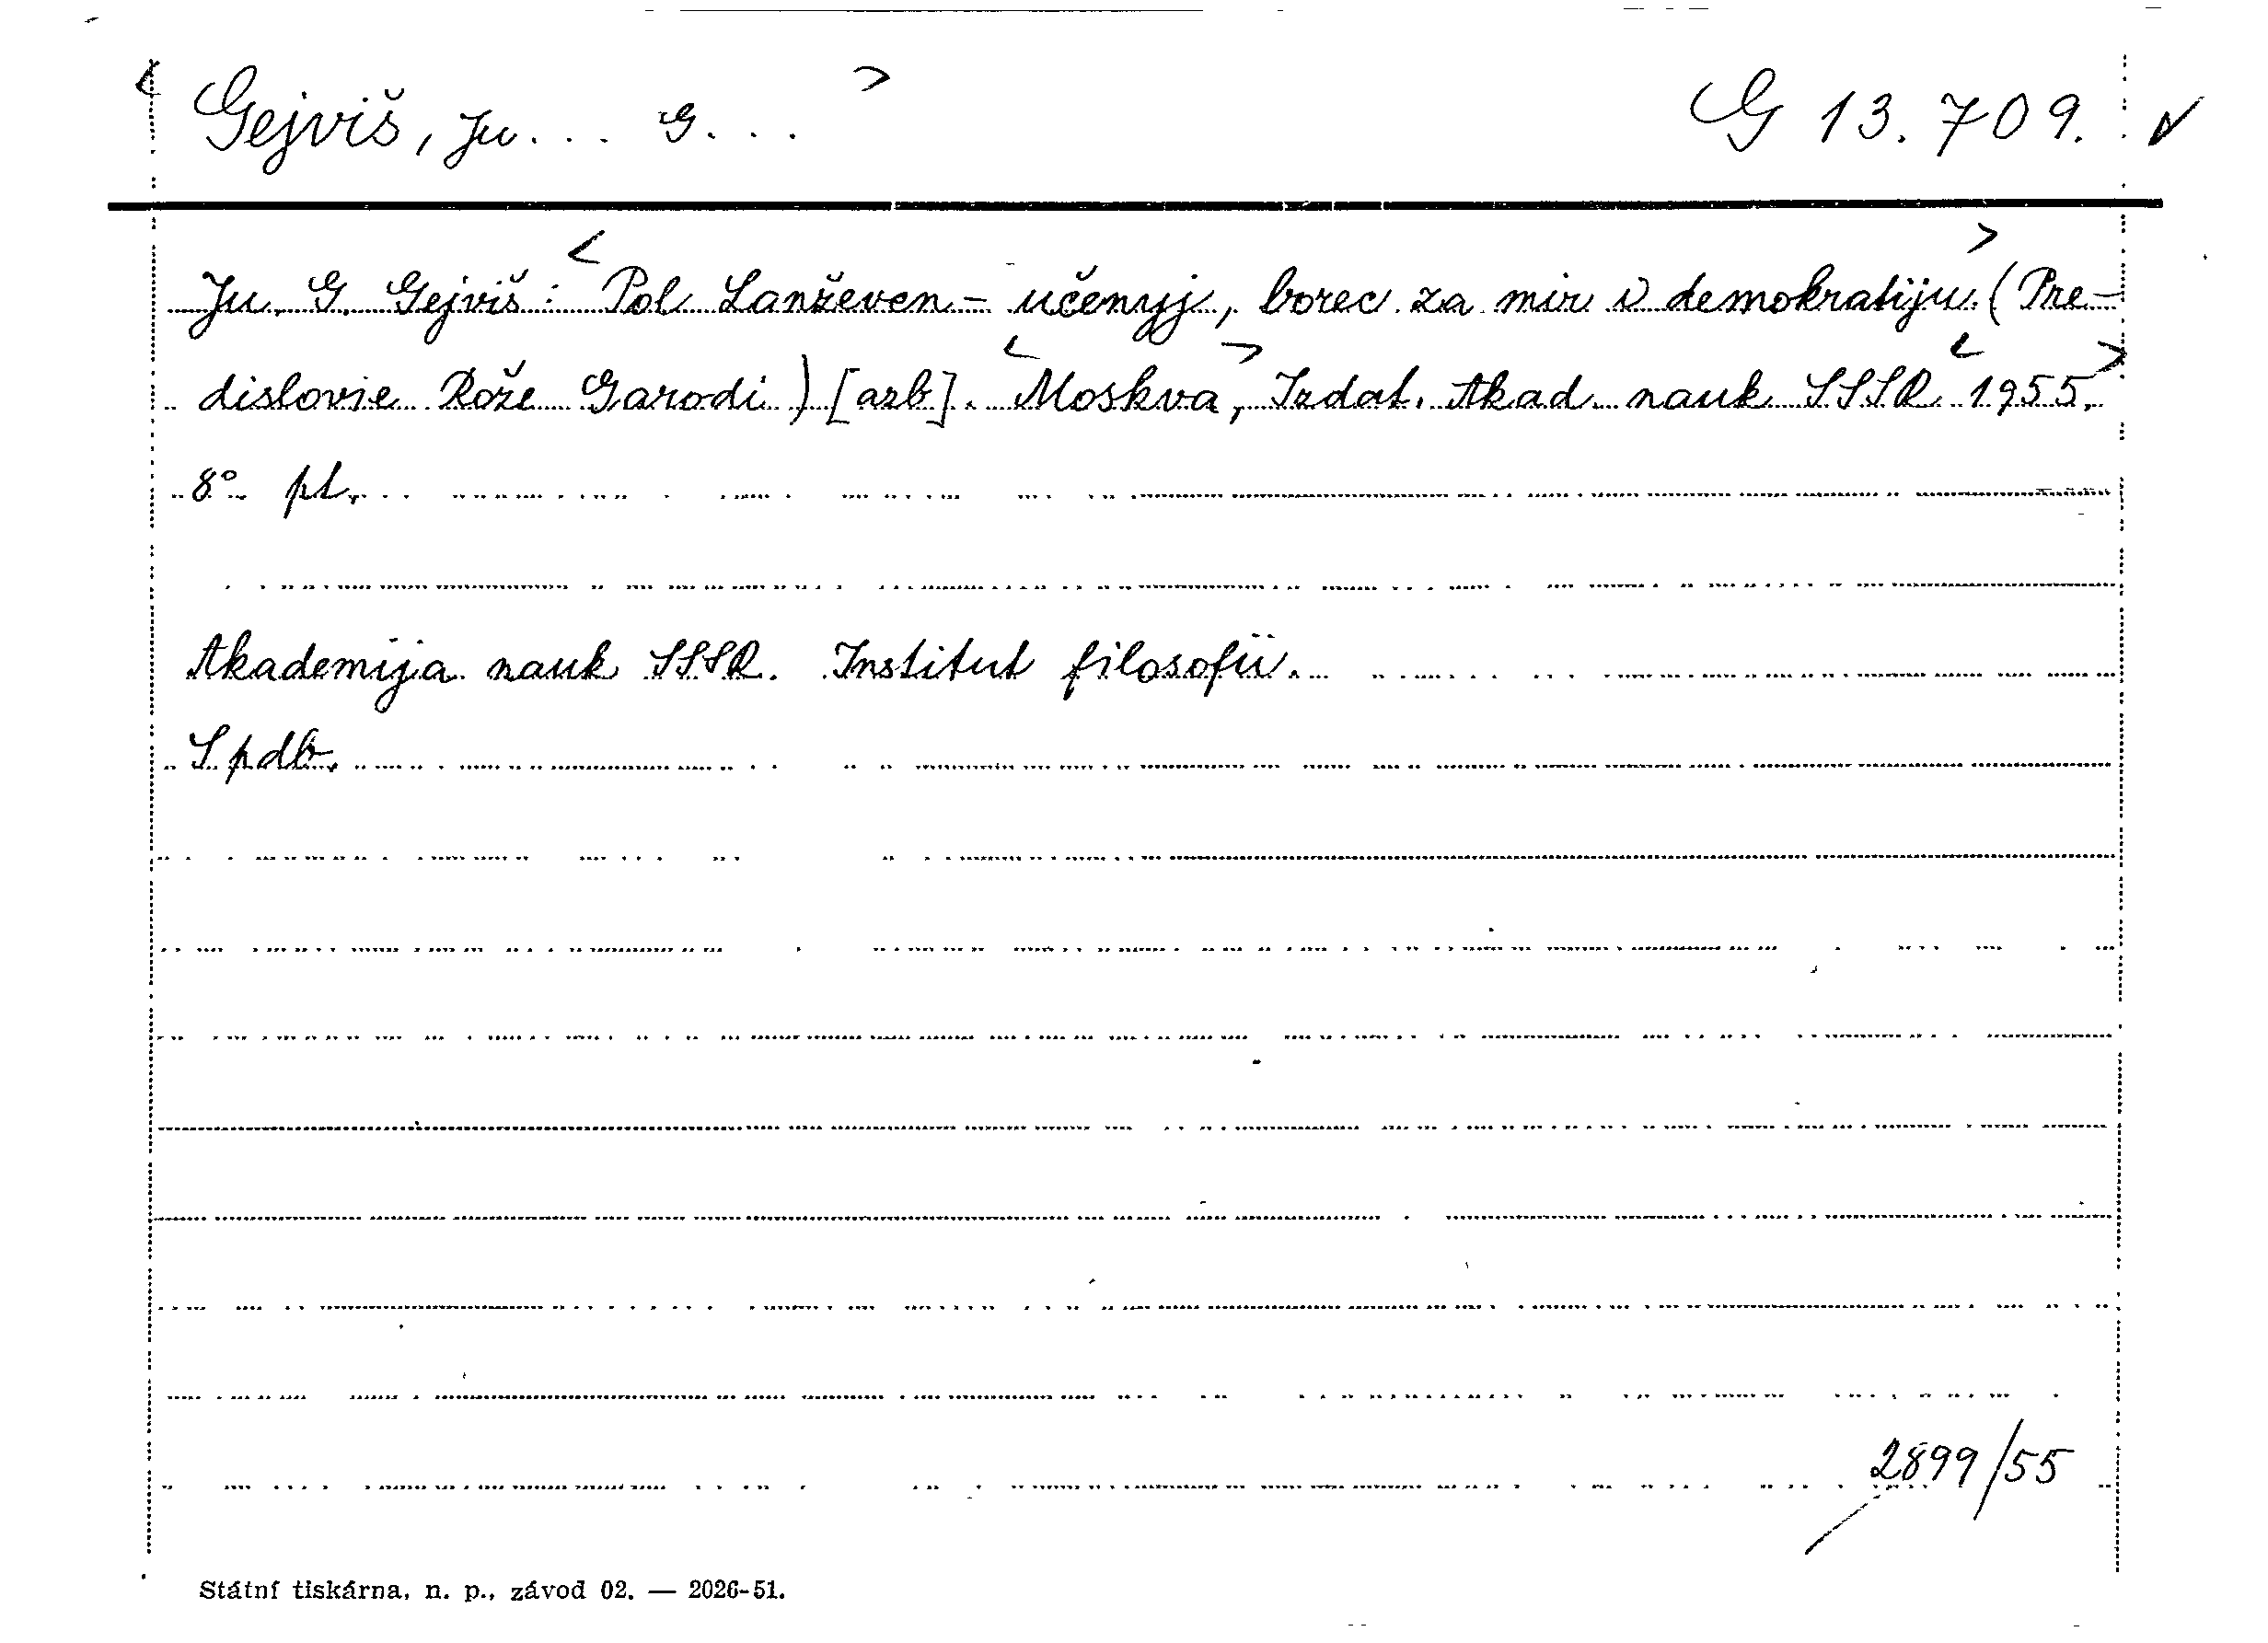 < Gejviš, Ju... G... > G 13.709. ✓
Ju. G. Gejviš: < Pol Lanževen - učenyj, borec za mir i demokratiju. > (Pre-
dislovie Rože Garodi) [azb]. < Moskva, > Izdat. Akad. nauk SSSR < 1955. >
8° pt.
Akademija nauk SSSR. Institut filosofii.
S pdb.
2899/55
Státní tiskárna, n. p., závod 02. — 2026-51.